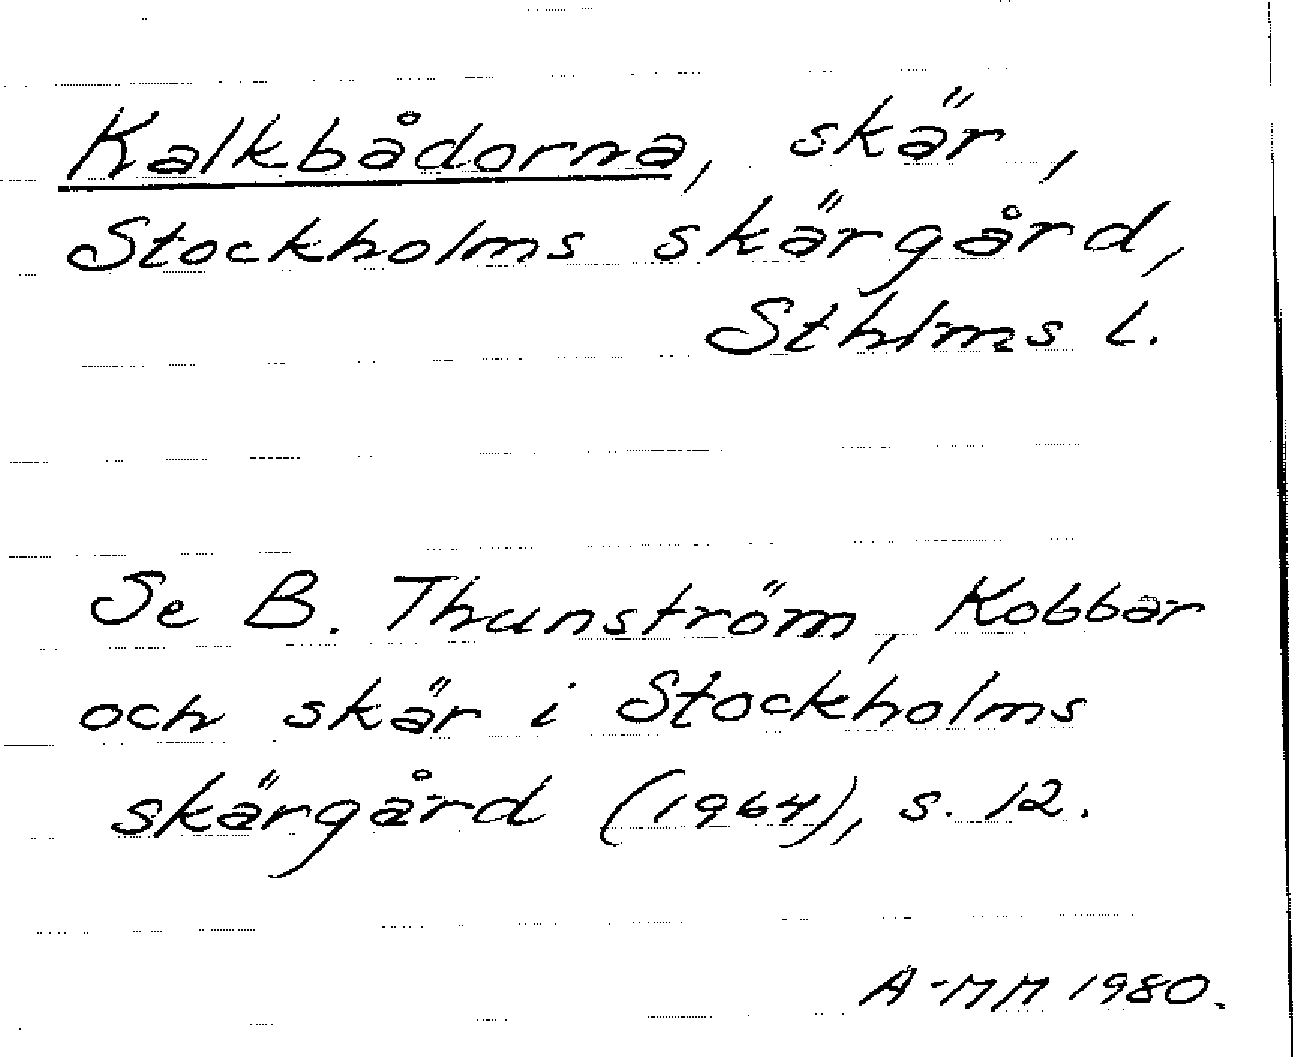 Kalkbådorna, skär,
Stockholms skärgård,
Sthlms l.
Se B. Thunström, Kobbar
och skär i Stockholms
skärgård (1964), s. 12.
A-MM 1980.